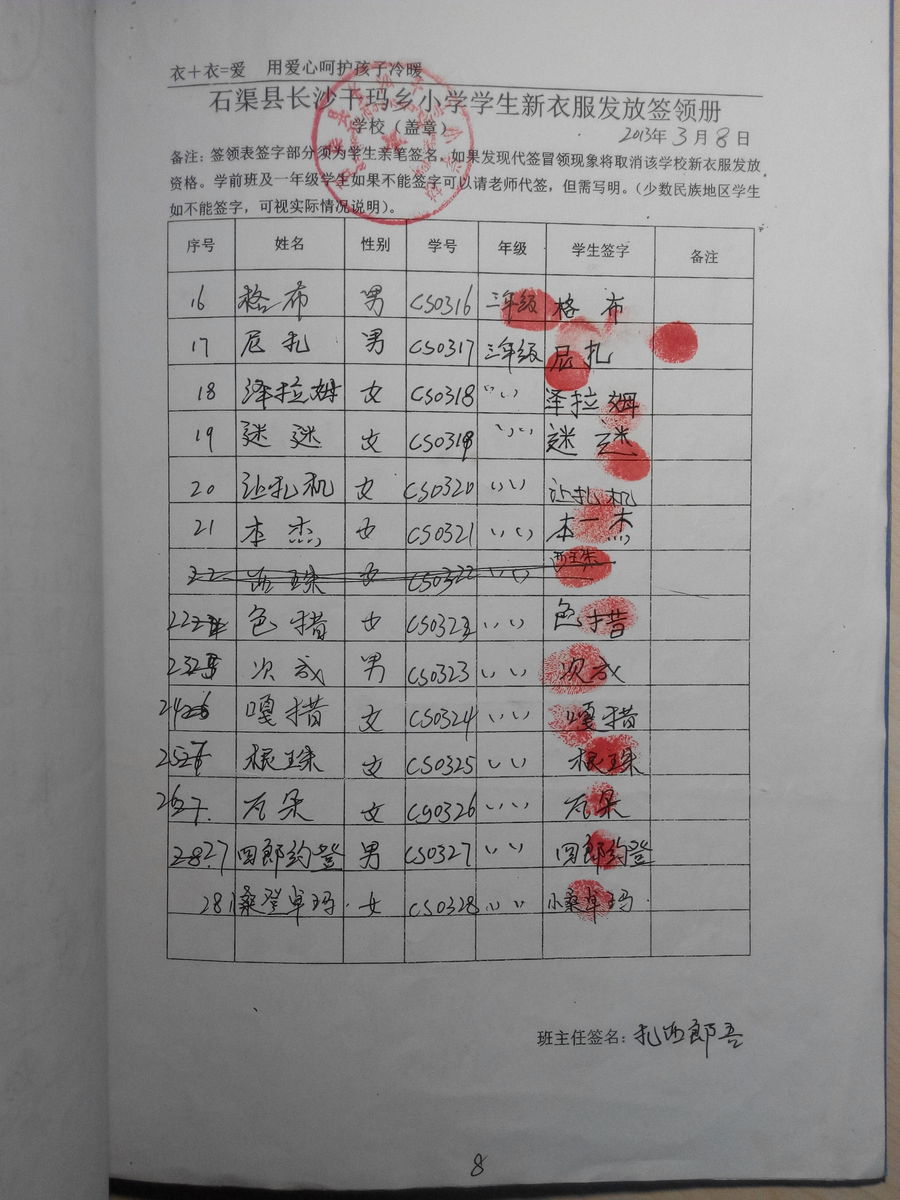 衣+衣=爱 用爱心呵护孩子冷暖
石渠县长沙干玛乡小学学生新衣服发放签领册
学校（盖章）
2013年3月8日
备注：签领表签字部分须为学生亲笔签名，如果发现代签冒领现象将取消该学校新衣服发放
资格。学前班及一年级学生如果不能签字可以请老师代签，但需写明。（少数民族地区学生
如不能签字，可视实际情况说明）。
序号 姓名 性别 学号 年级 学生签字 备注
16 格布 男 CS0316 三年级 格布
17 尼扎 男 CS0317 三年级 尼扎
18 泽拉姆 女 CS0318 〃 泽拉姆
19 迷迷 女 CS0319 〃 迷迷
20 让扎机 女 CS0320 〃 让扎机
21 本杰 女 CS0321 〃 本一杰
22 西珠 女 CS0322 〃 西珠
22 色措 女 CS0322 〃 色措
23 次成 男 CS0323 〃 次成
24 嘎措 女 CS0324 〃 嘎措
25 根珠 女 CS0325 〃 根珠
26 瓦朵 女 CS0326 〃 瓦朵
27 四郎约登 男 CS0327 〃 四郎约登
28 桑登卓玛 女 CS0328 〃 小桑卓玛
班主任签名：扎西郎吾
8